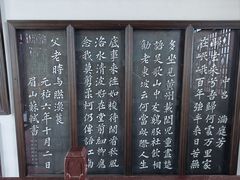 滿庭芳
歸去來兮吾歸何處萬里家
在岷峨百年强半來日苦無
多坐見黃州再閏兒童盡楚
語吳歌山中友雞豚社酒相
勸老東坡云何當此去人生
底事來往如梭待閑看秋風
洛水清波好在堂前細柳應
念我莫剪柔柯仍傳語江南
父老時與曬漁蓑
元祐六年十月二日
眉山蘇軾書